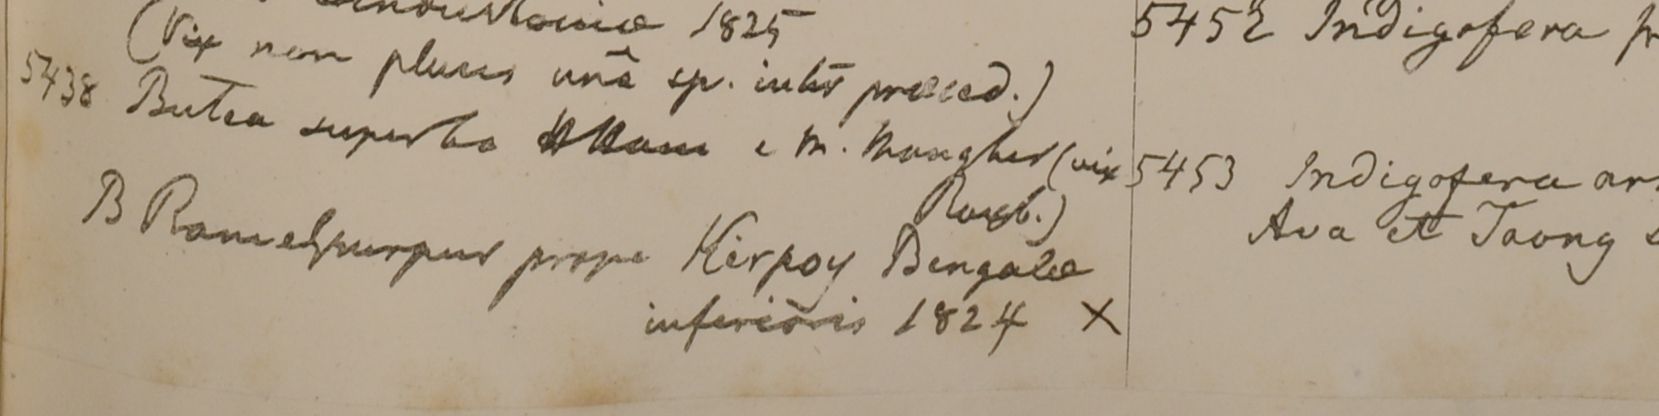 1825
(Vix nem plures unâ sp. inter præced.)
5438 Butea superba e m. Mongher (vix
Roxb.)
B prope Kerpoy Bengalæ
inferioris 1824 X
5452 Indigofera
5453 Indigofera
Ava et Taong